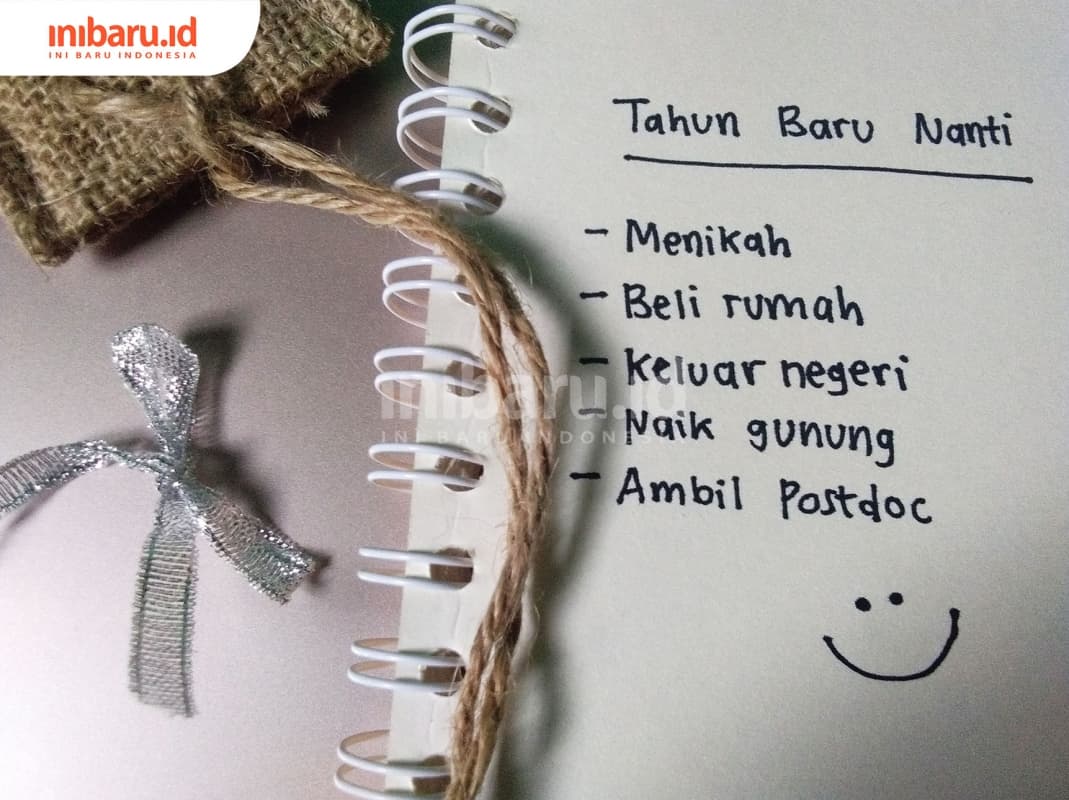 inibaru.id
INI BARU INDONESIA
Tahun Baru Nanti
- Menikah
- Beli rumah
- Keluar negeri
- Naik gunung
- Ambil Postdoc
inibaru.id
INI BARU INDONESIA